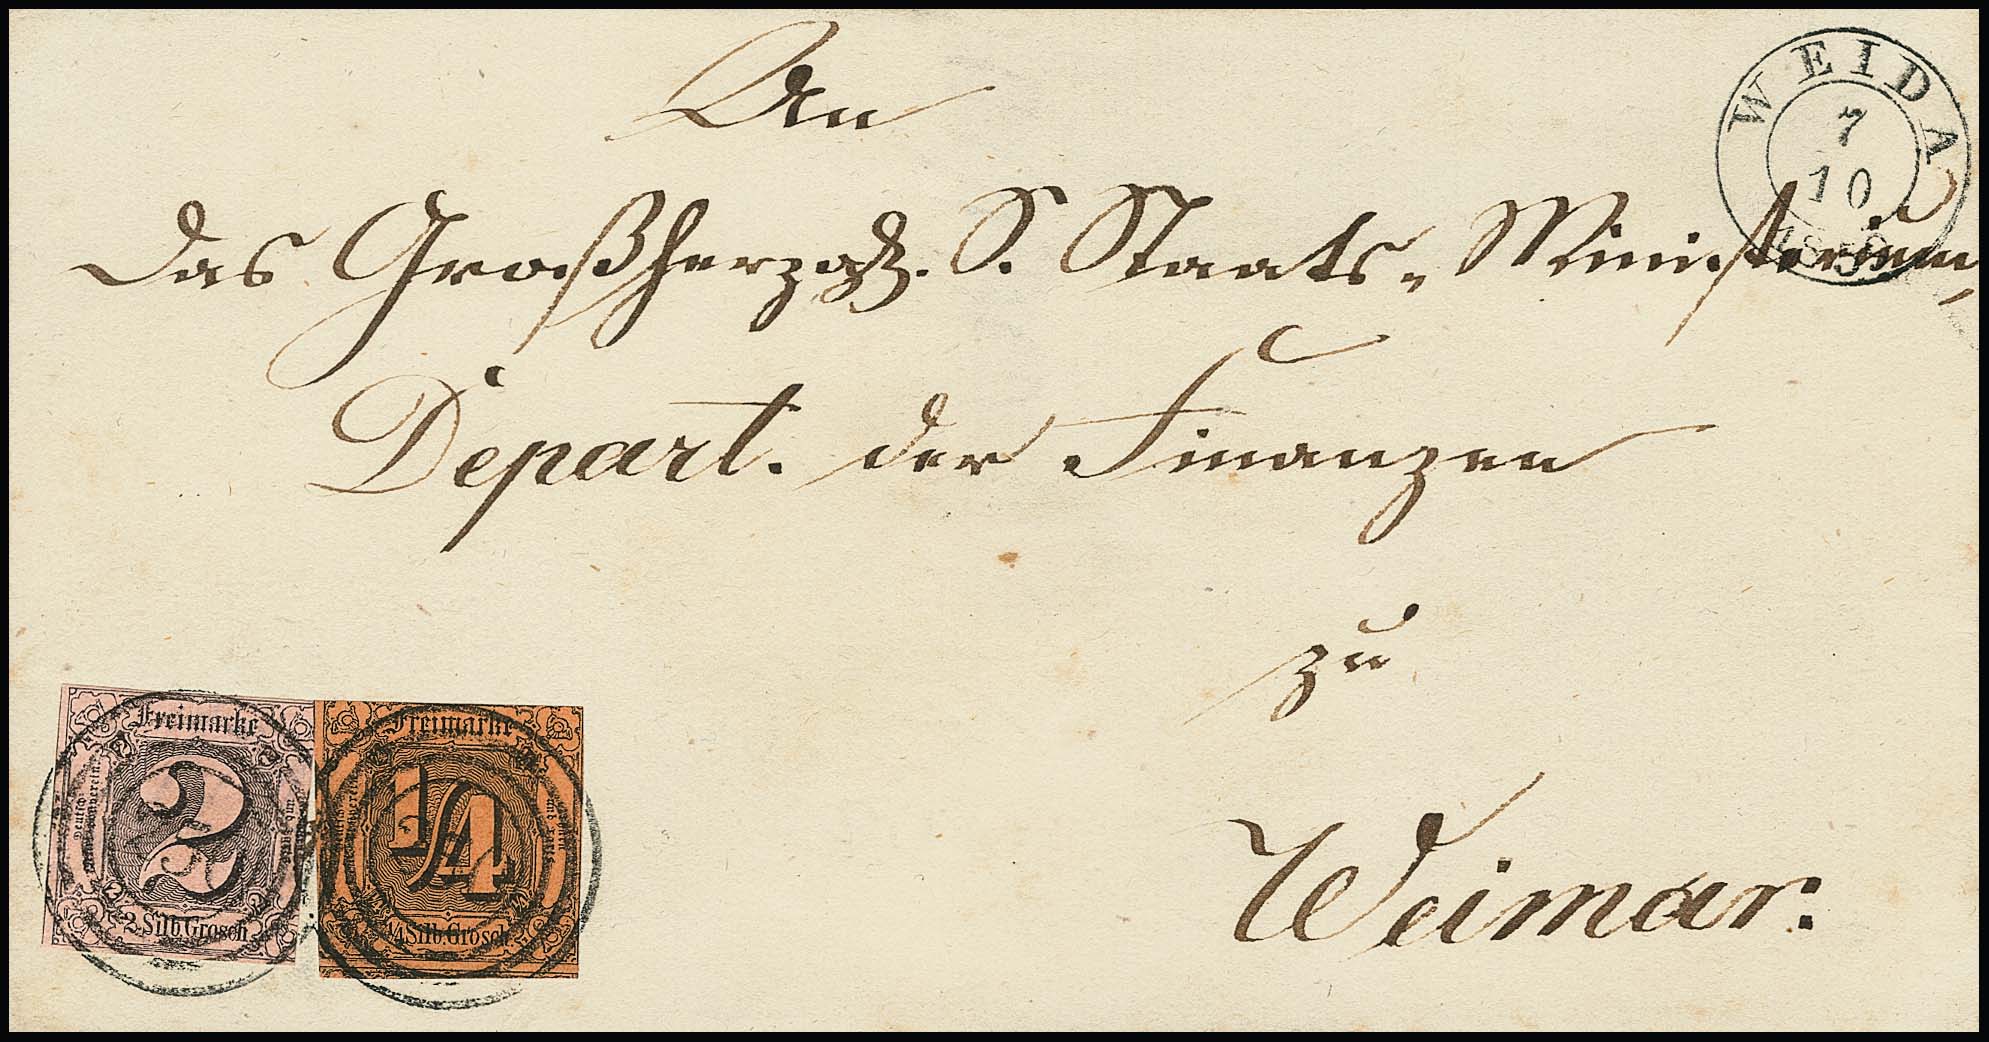 An
WEIDA
7
10
das Großherzgl. S. Staats-Ministerium,
Depart. der Finanzen
zu
Weimar.
Freimarke
Deutsch
2
2 Silb. Grosch
Freimarke
1/4
1/4 Silb. Grosch